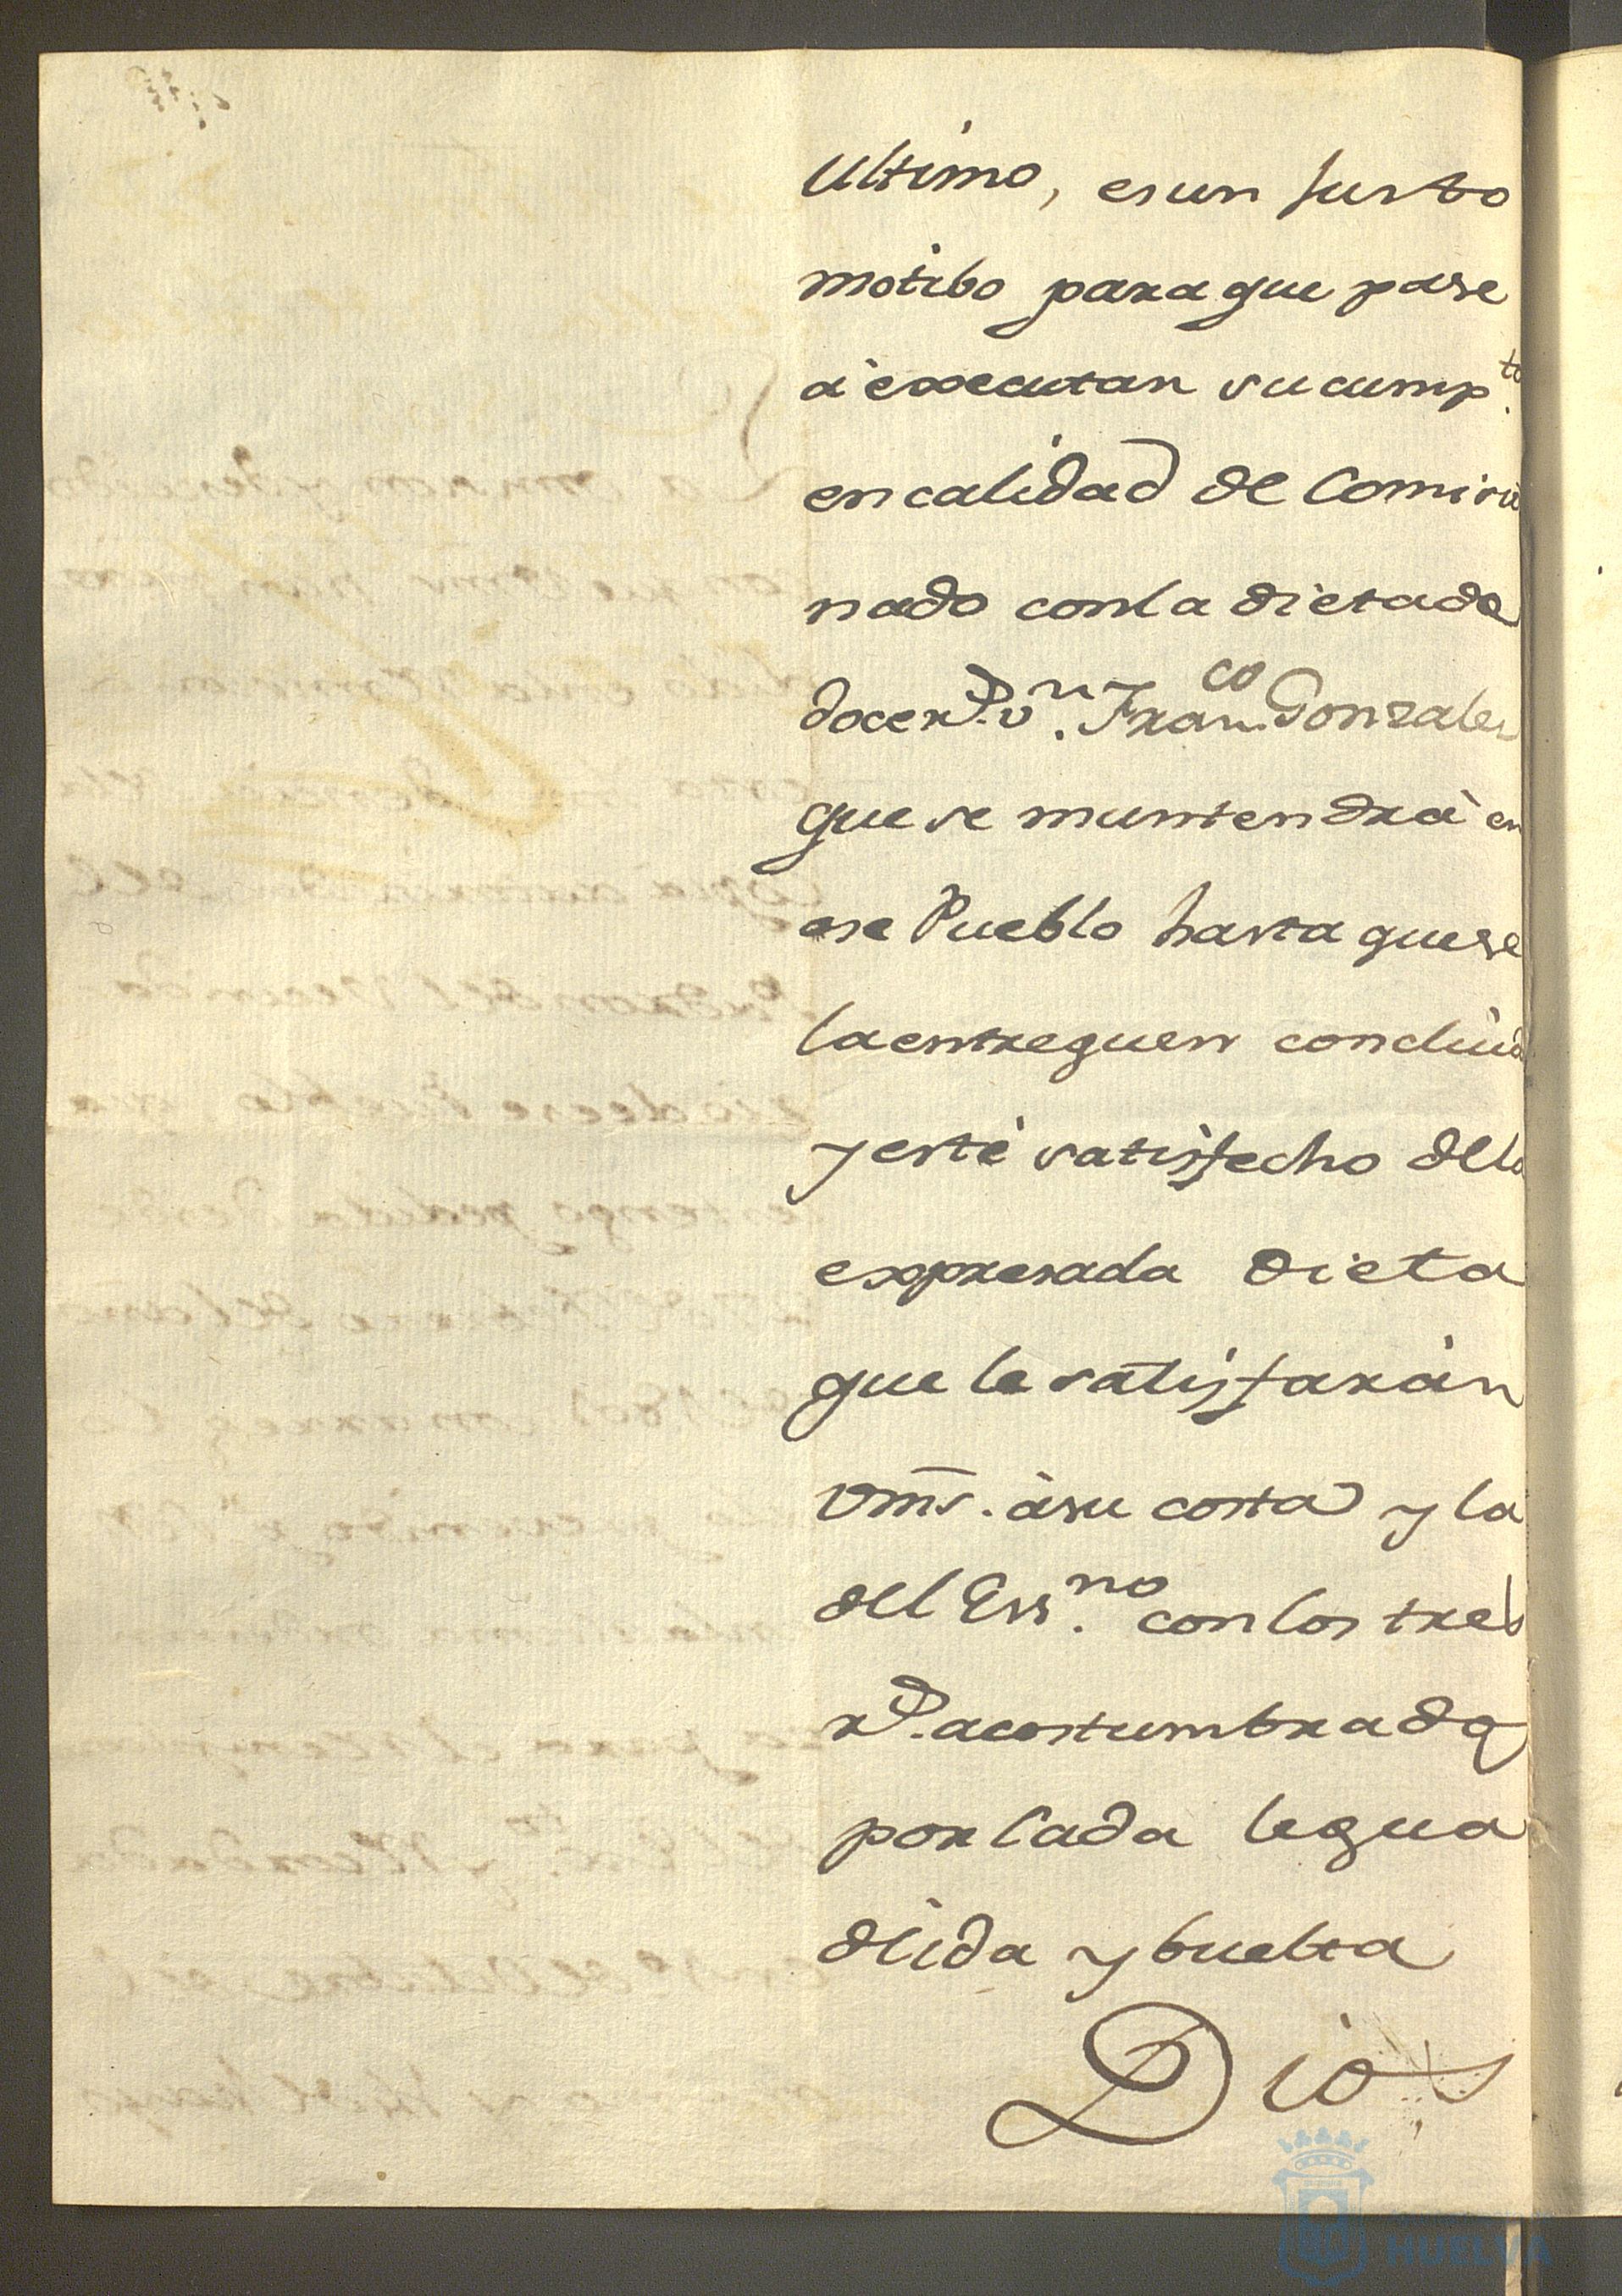 Ultimo, es un Justo
motibo para que pase
à executar su cump.to
en calidad de Comisio
nado con la dieta de
doce rs. vn. Franco. Gonzales
que se muntendrà en
ese Pueblo hasta que se
la entreguen concluida
y estè satisfecho de la
expresada dieta
que le satisfaràn
Vms. à su costa y la
del Essno. con los tres
rs. acostumbrados
por Cada legua
de ida y buelta
Dios
HUELVA